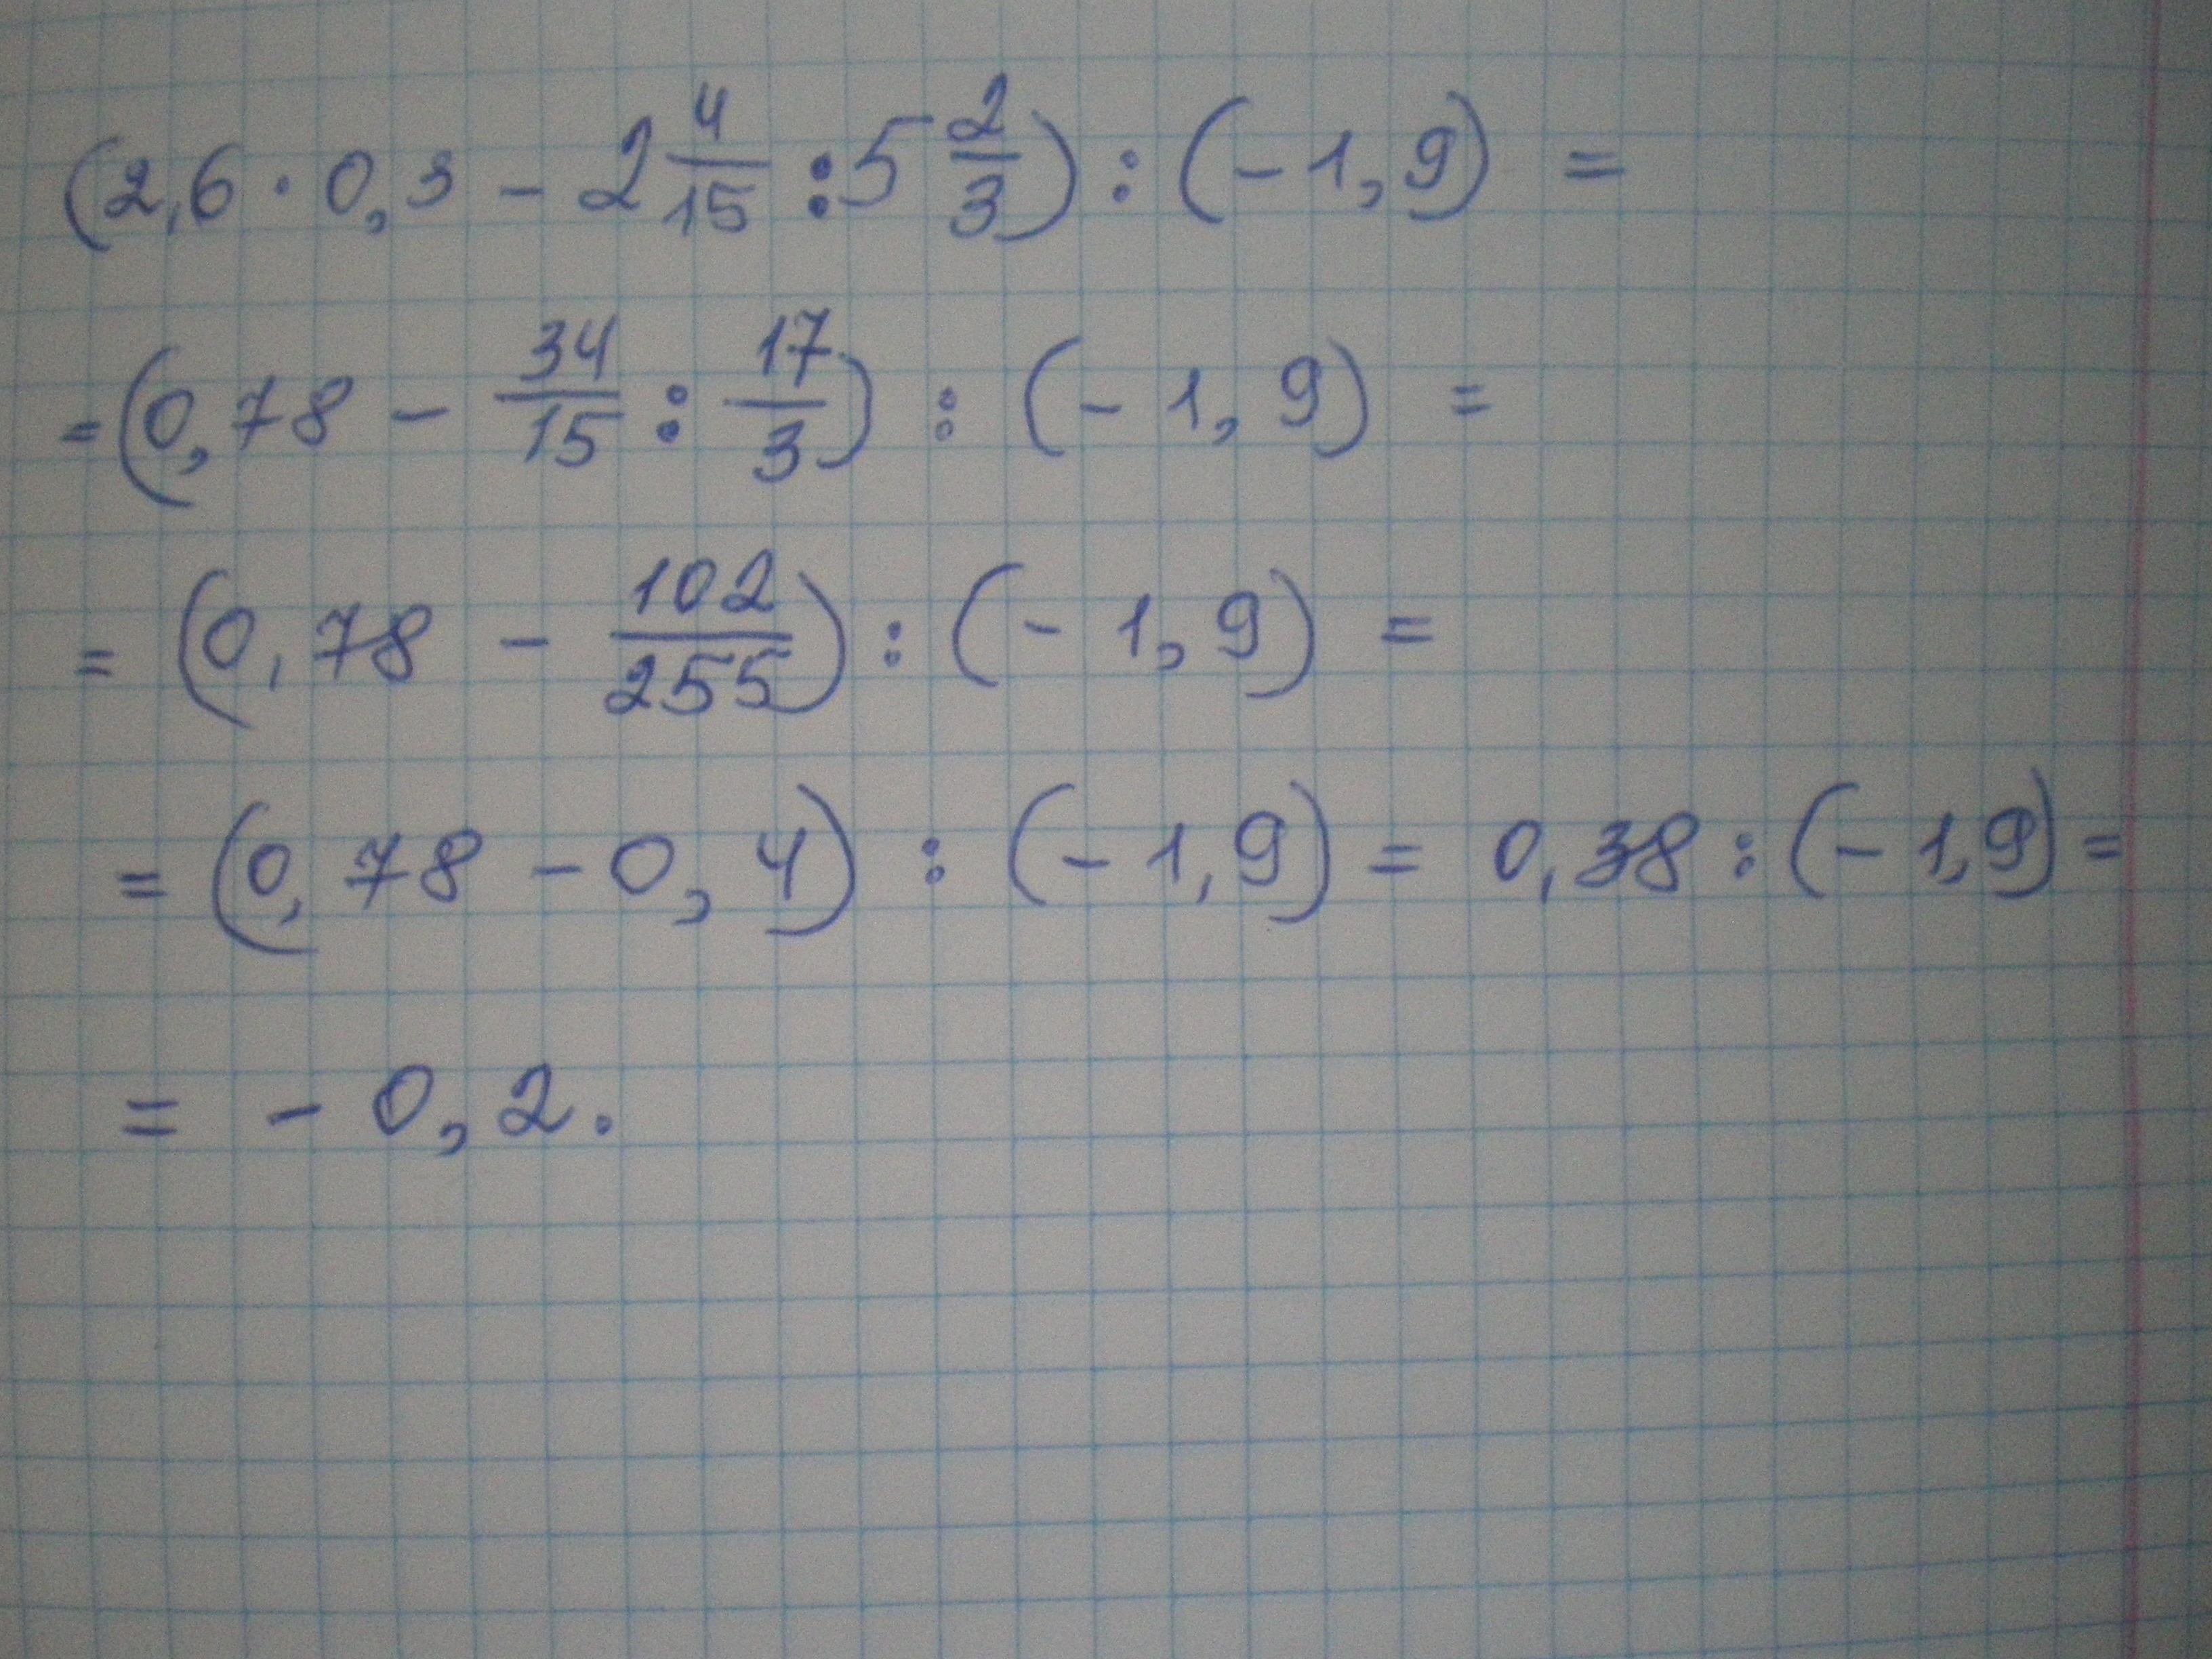 (2,6 · 0,3 - 2 4/15 : 5 2/3) : (-1,9) =
= (0,78 - 34/15 : 17/3) : (-1,9) =
= (0,78 - 102/255) : (-1,9) =
= (0,78 - 0,4) : (-1,9) = 0,38 : (-1,9) =
= - 0,2.